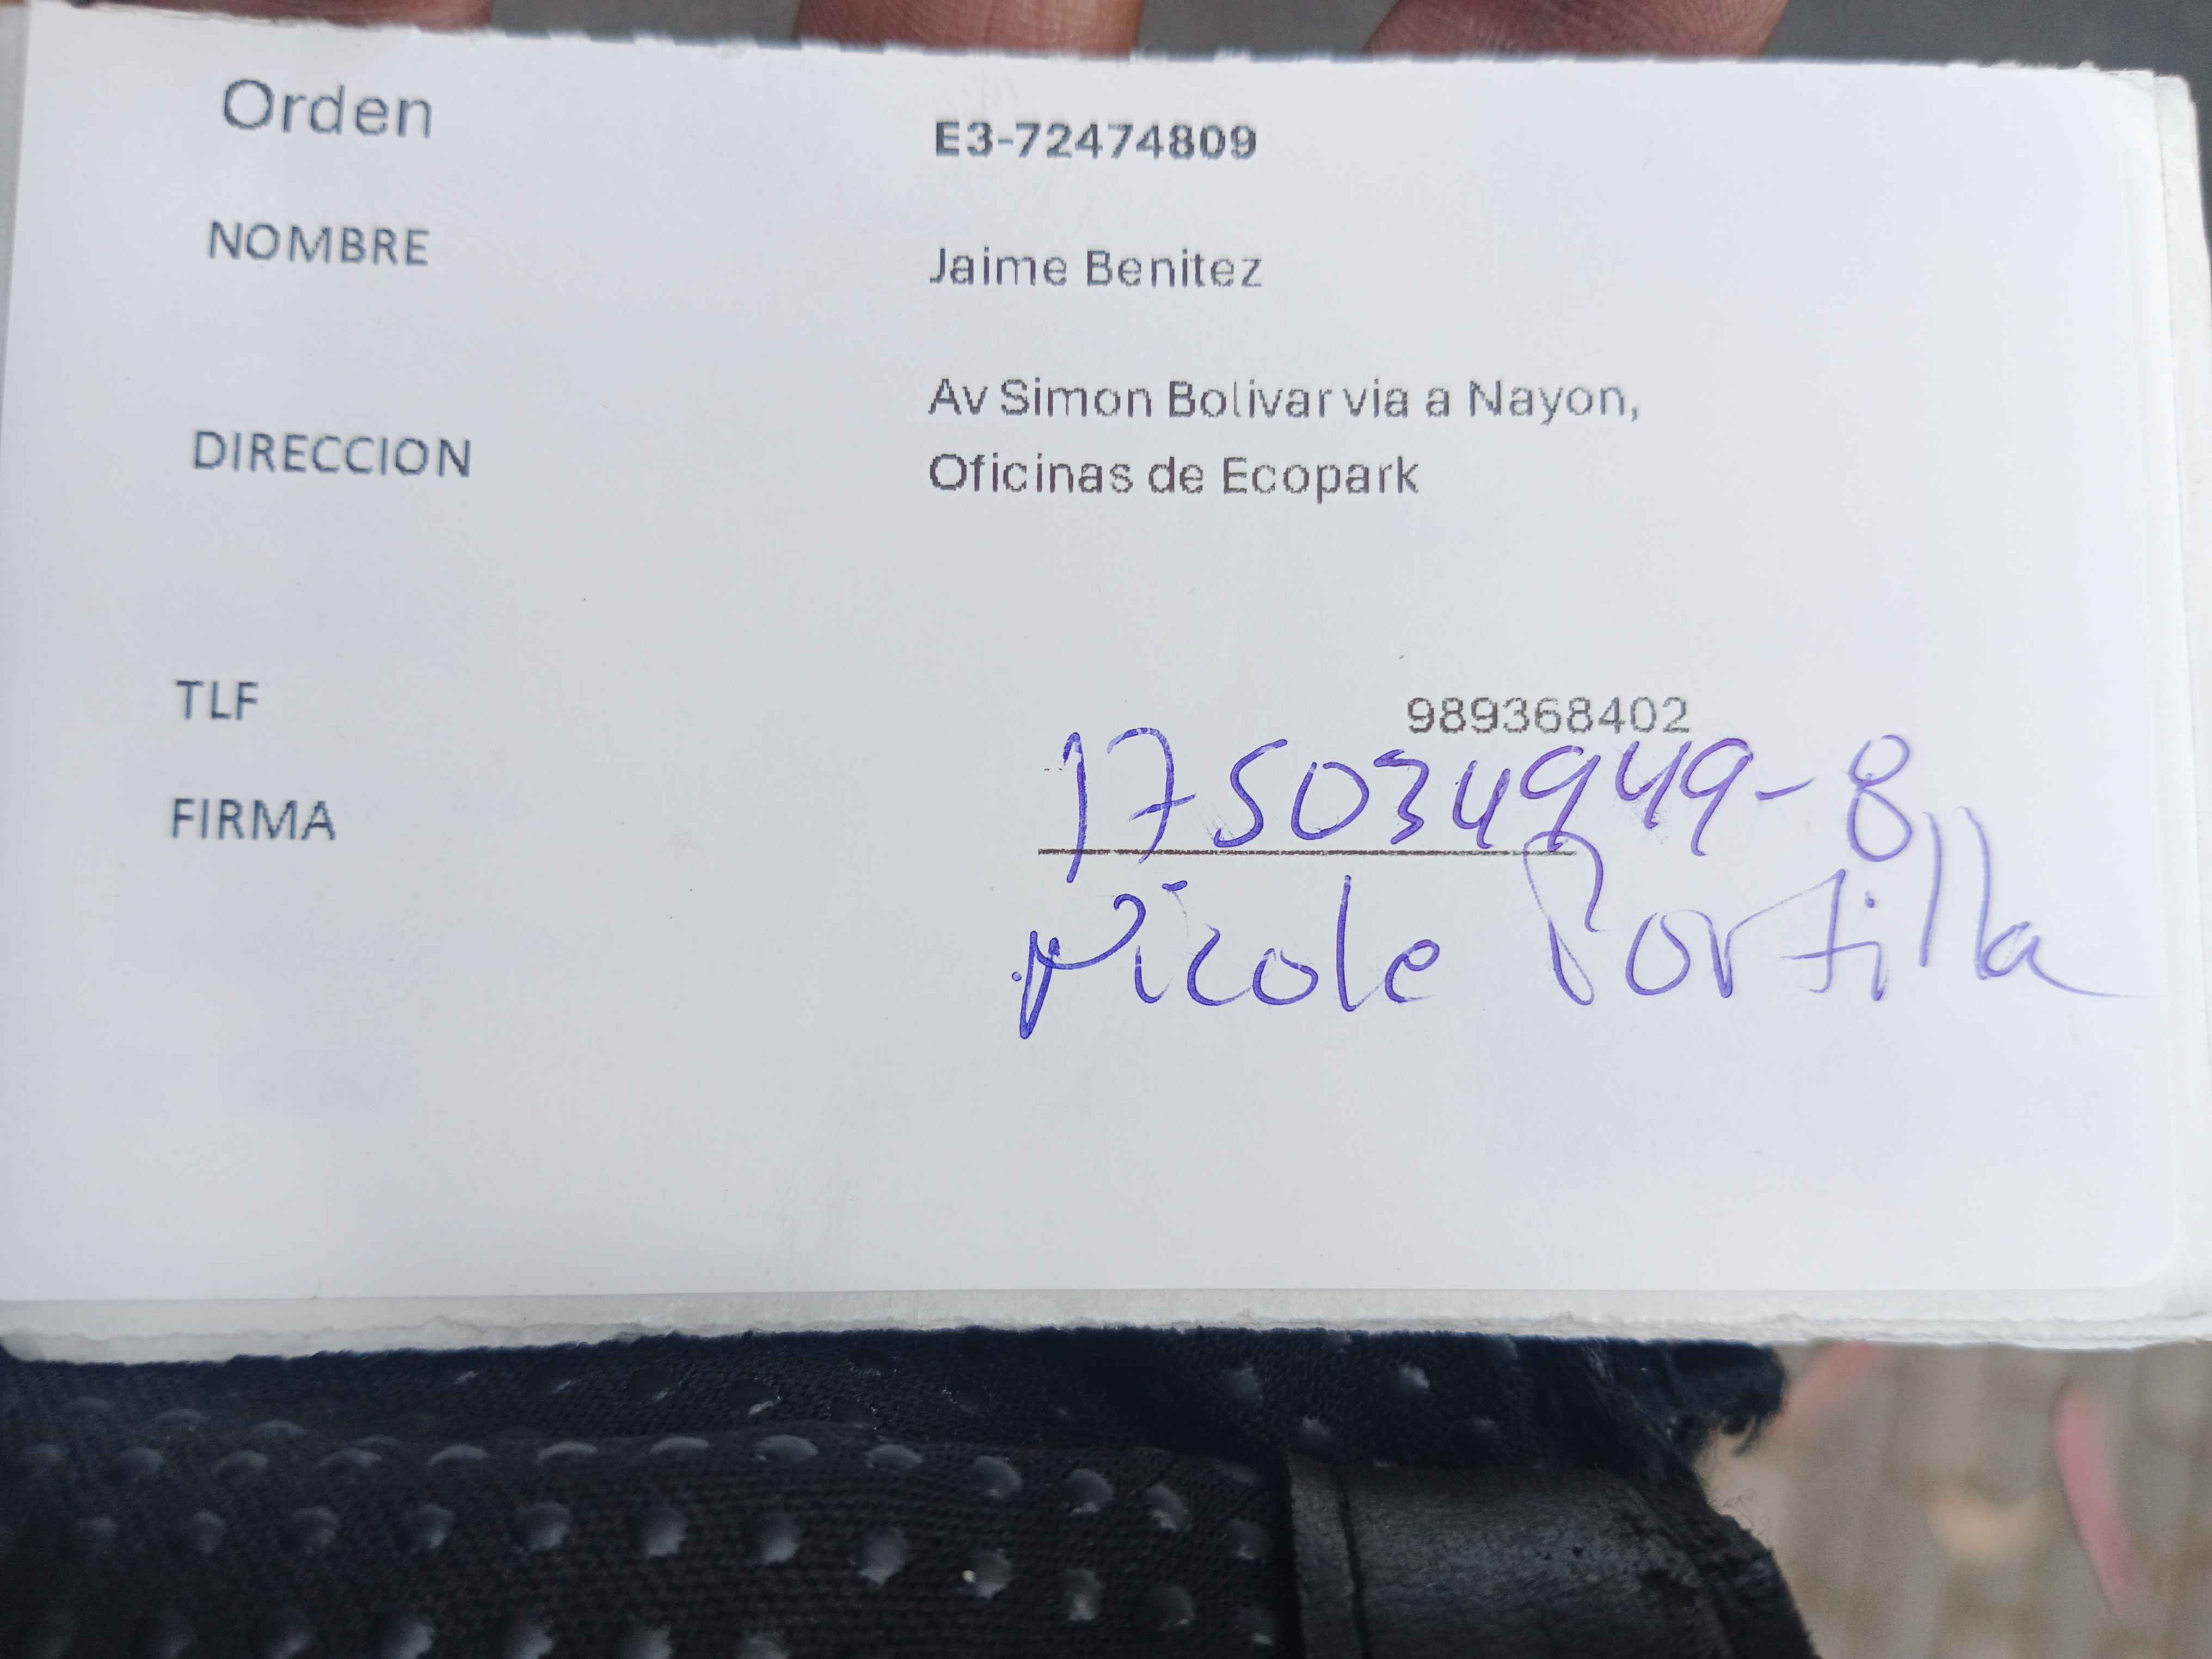 Orden E3-72474809
NOMBRE Jaime Benitez
Av Simon Bolivar via a Nayon,
DIRECCION
Oficinas de Ecopark
TLF 989368402
FIRMA 175034949-8
Nicole Portilla